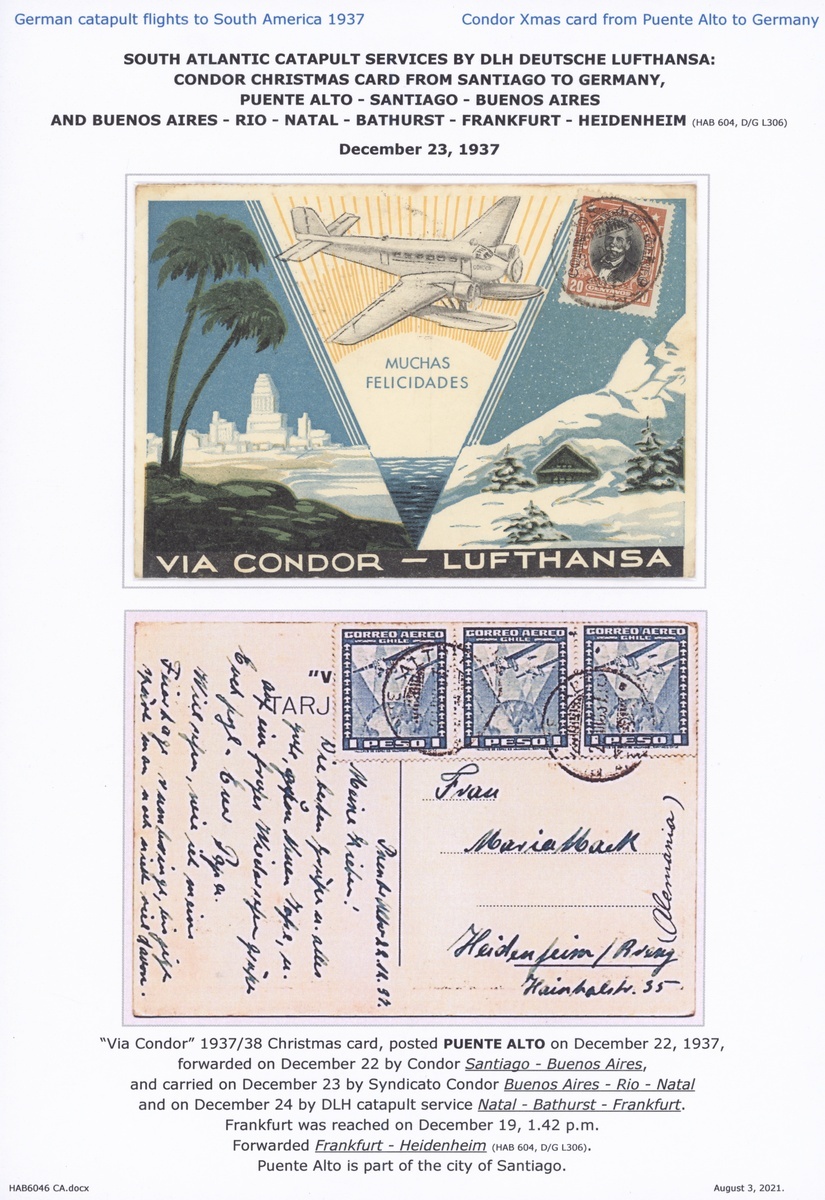 German catapult flights to South America 1937
Condor Xmas card from Puente Alto to Germany
SOUTH ATLANTIC CATAPULT SERVICES BY DLH DEUTSCHE LUFTHANSA:
CONDOR CHRISTMAS CARD FROM SANTIAGO TO GERMANY,
PUENTE ALTO - SANTIAGO - BUENOS AIRES
AND BUENOS AIRES - RIO - NATAL - BATHURST - FRANKFURT - HEIDENHEIM (HAB 604, D/G L306)
December 23, 1937
CONDOR
20 CENTAVOS
MUCHAS
FELICIDADES
VIA CONDOR – LUFTHANSA
CORREO AEREO
CHILE
1 PESO 1
CORREO AEREO
CHILE
1 PESO 1
CORREO AEREO
CHILE
1 PESO 1
"V
TARJ
Puente Alto 22.12.37.
Meine Lieben!
Die besten Grüße u. alles
auf ein frohes Wiedersehen Grüße
Euer Papa.
Frau
Maria Mack
Heidenheim / Brenz
Hainthalstr. 35
(Alemania)
"Via Condor" 1937/38 Christmas card, posted PUENTE ALTO on December 22, 1937,
forwarded on December 22 by Condor Santiago - Buenos Aires,
and carried on December 23 by Syndicato Condor Buenos Aires - Rio - Natal
and on December 24 by DLH catapult service Natal - Bathurst - Frankfurt.
Frankfurt was reached on December 19, 1.42 p.m.
Forwarded Frankfurt - Heidenheim (HAB 604, D/G L306).
Puente Alto is part of the city of Santiago.
HAB6046 CA.docx
August 3, 2021.